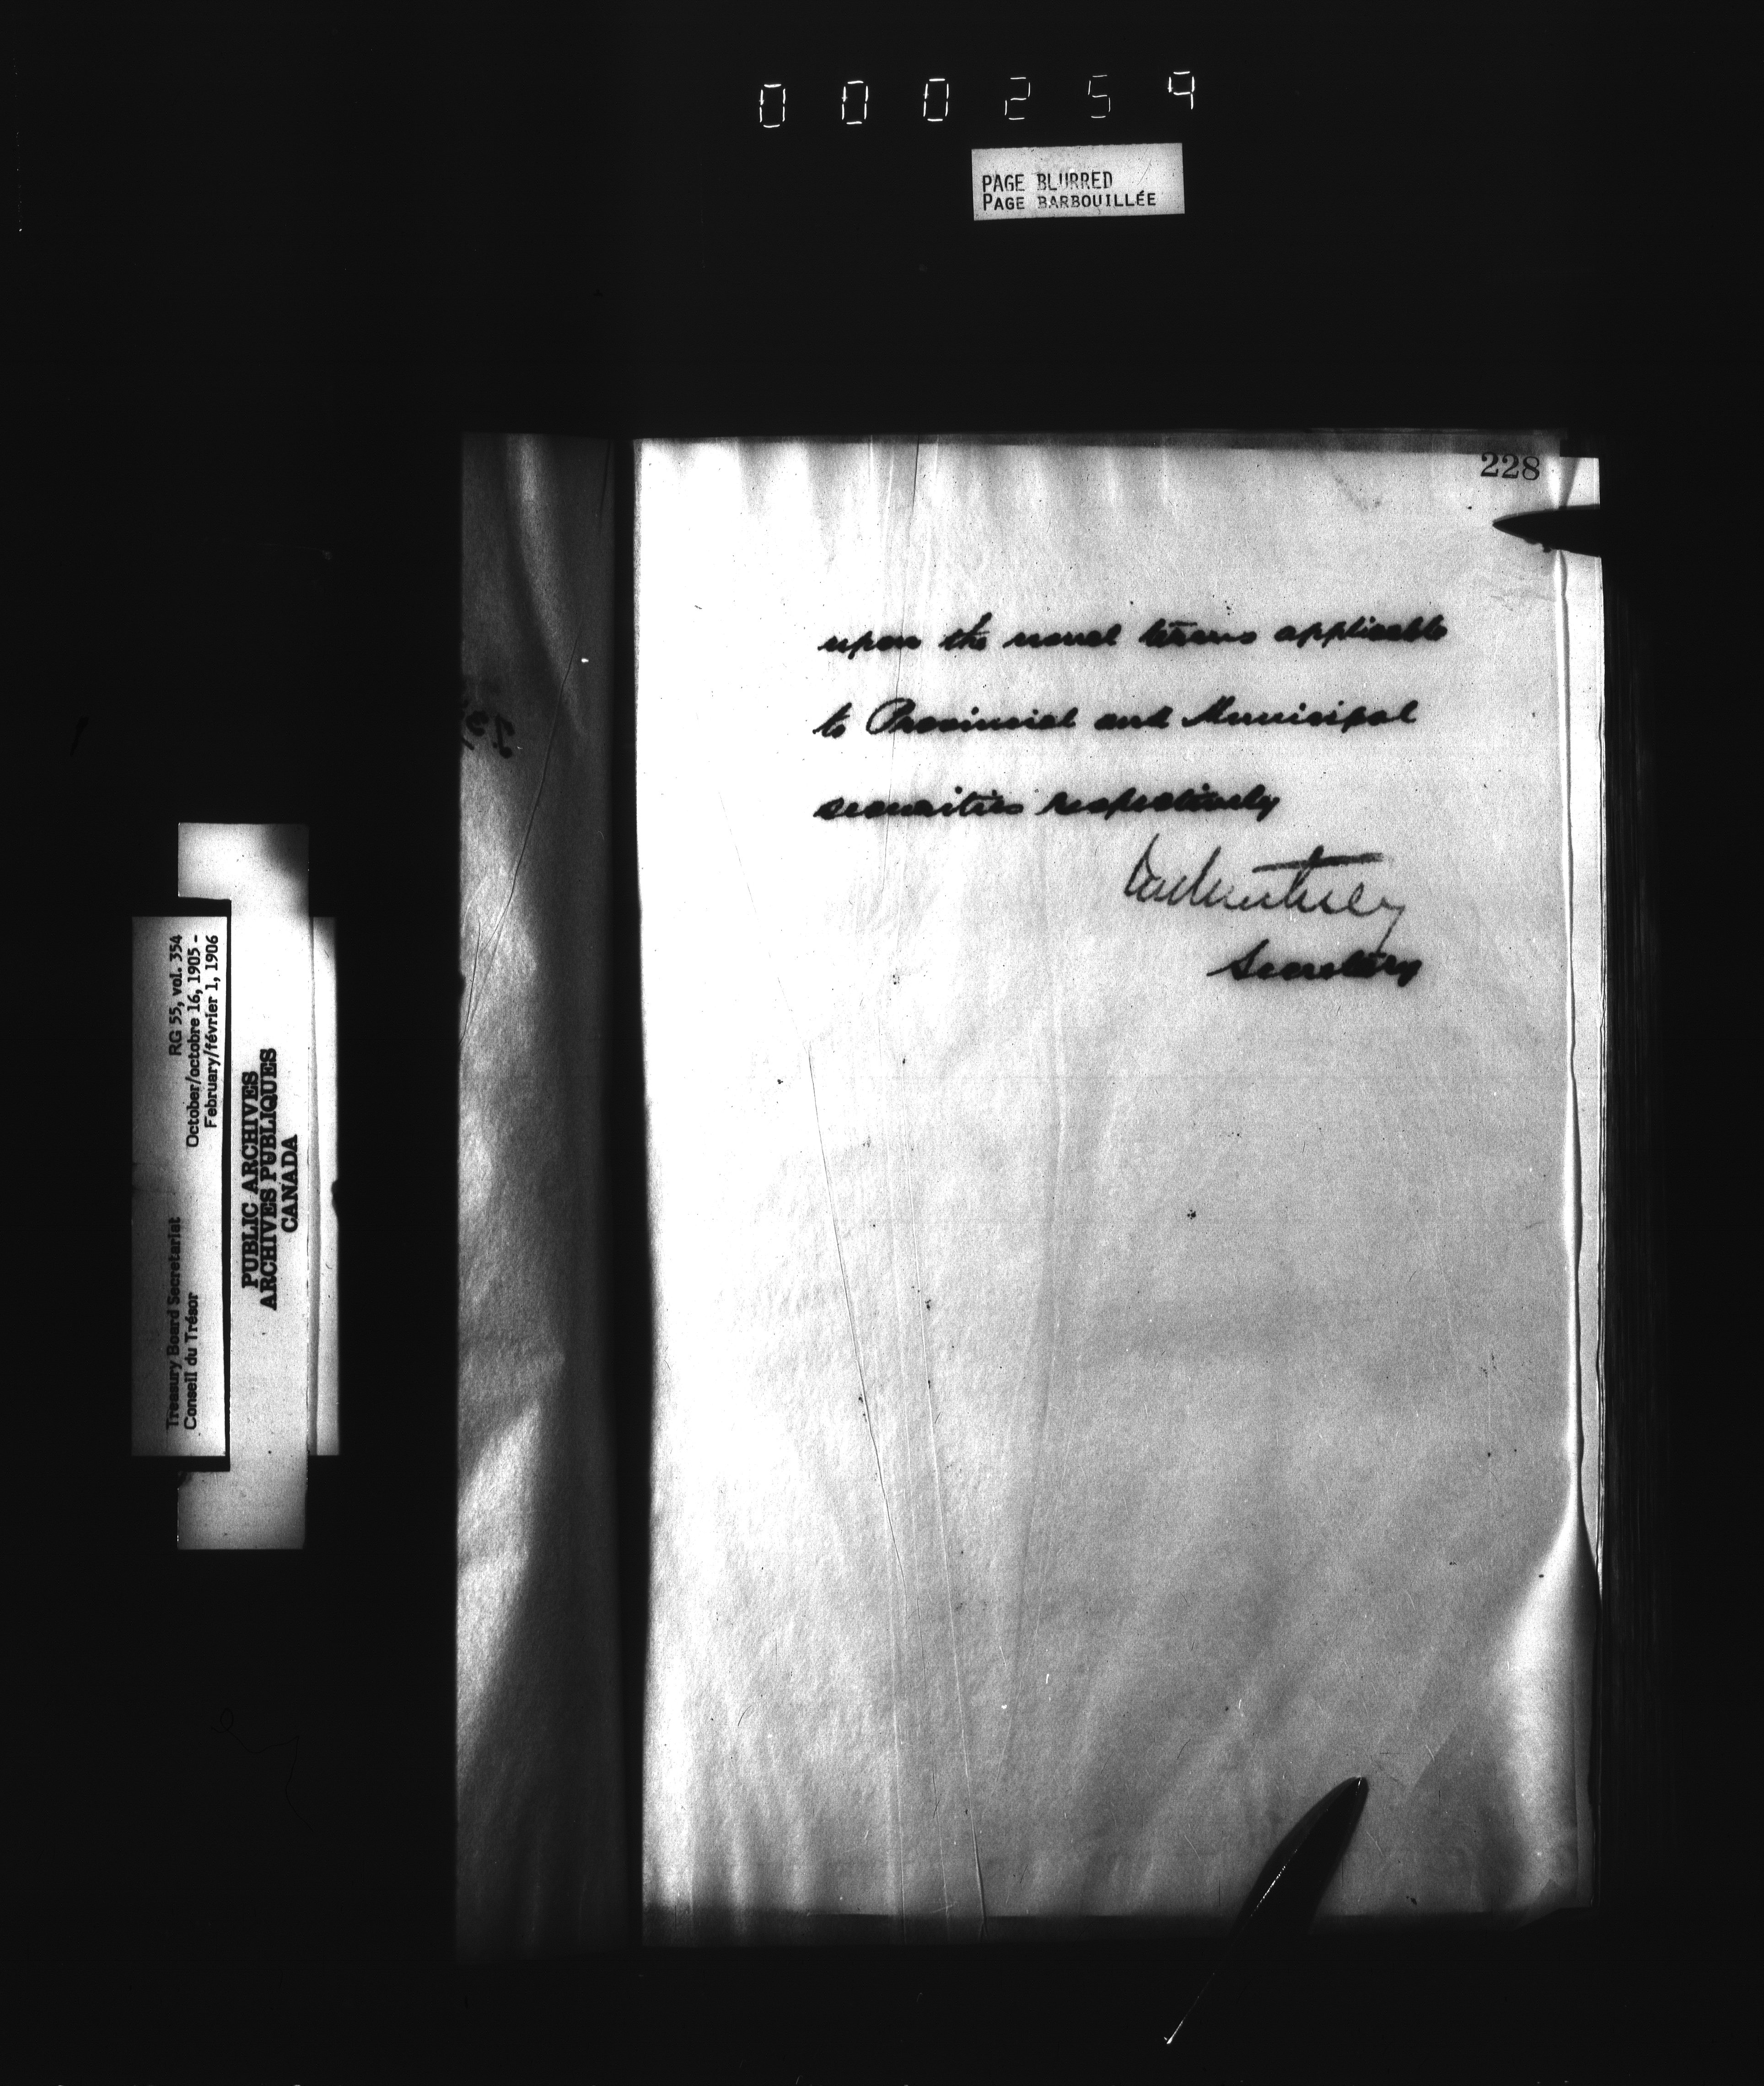 000259
PAGE BLURRED
PAGE BARBOUILLÉE
228
upon the usual terms applicable
to Provincial and Municipal
securities respectively
Secretary
RG 55, vol. 354
October/octobre 16, 1905 -
February/février 1, 1906
Treasury Board Secretariat
Conseil du Trésor
PUBLIC ARCHIVES
ARCHIVES PUBLIQUES
CANADA